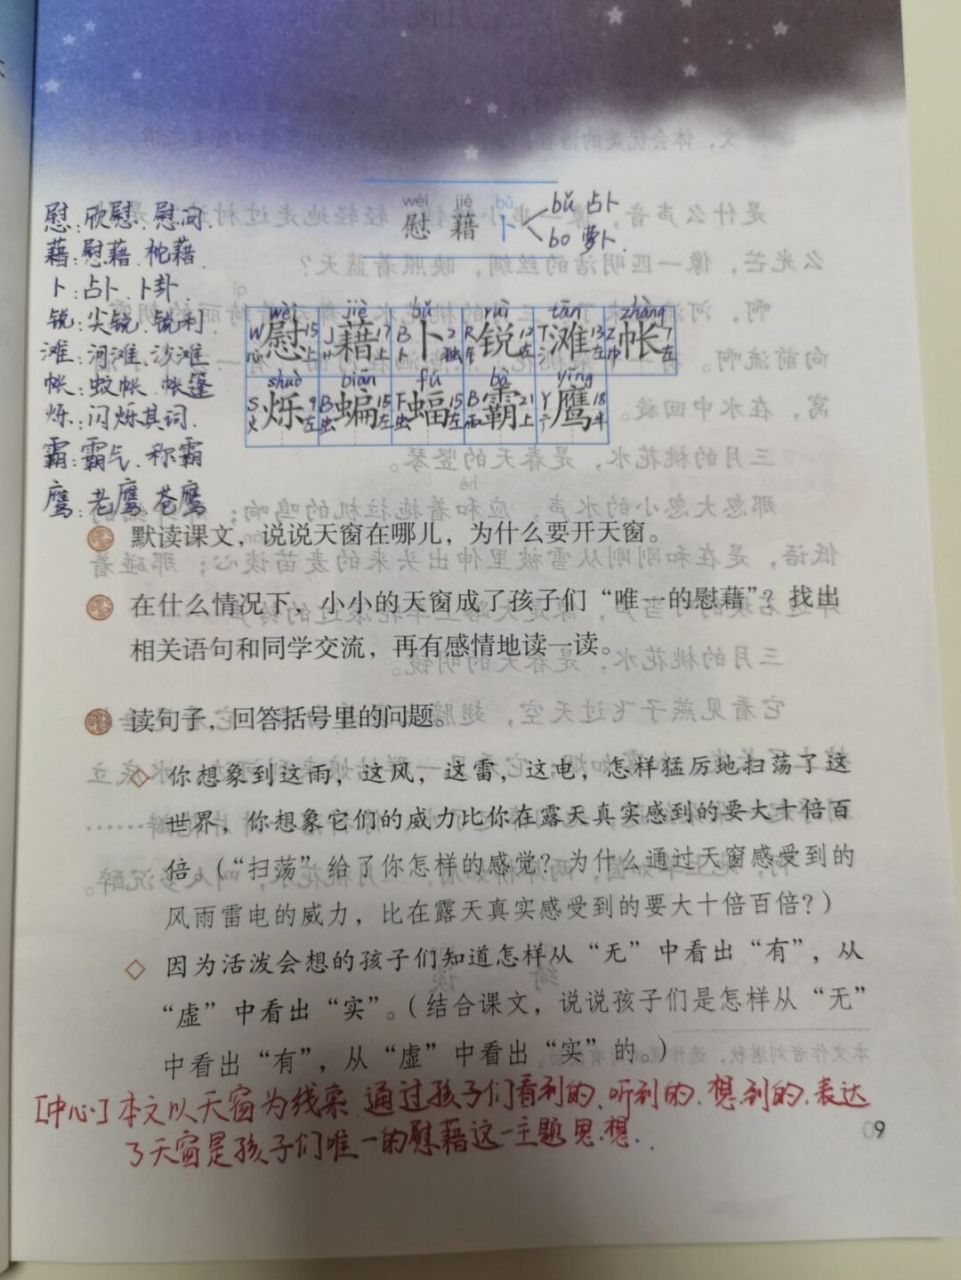 wèi jiè bǔ
慰 藉 卜
bǔ 占卜
bo 萝卜
慰:欣慰.慰问.
藉:慰藉.枕藉.
卜:占卜.卜卦.
锐:尖锐.锐利.
滩:河滩.沙滩
帐:蚊帐.帐篷
烁:闪烁其词.
霸:霸气.称霸
鹰:老鹰.苍鹰
wèi jiè bǔ ruì tān zhàng
W慰15 J藉17 B卜2 R锐12 T滩13 Z帐7
心 上 艹 上 卜 独 钅 左 氵 左 巾 左
shuò biān fú bà yīng
S烁9 B蝙15 F蝠15 B霸21 Y鹰18
火 左 虫 左 虫 左 雨 上 广 半
默读课文，说说天窗在哪儿，为什么要开天窗。
在什么情况下，小小的天窗成了孩子们“唯一的慰藉”？找出
相关语句和同学交流，再有感情地读一读。
读句子，回答括号里的问题。
◇ 你想象到这雨，这风，这雷，这电，怎样猛厉地扫荡了这
世界，你想象它们的威力比你在露天真实感到的要大十倍百
倍。（“扫荡”给了你怎样的感觉？为什么通过天窗感受到的
风雨雷电的威力，比在露天真实感受到的要大十倍百倍？）
◇ 因为活泼会想的孩子们知道怎样从“无”中看出“有”，从
“虚”中看出“实”。（结合课文，说说孩子们是怎样从“无”
中看出“有”，从“虚”中看出“实”的。）
[中心]本文以天窗为线索.通过孩子们看到的、听到的.想到的.表达
了天窗是孩子们唯一的慰藉这一主题思想.
9